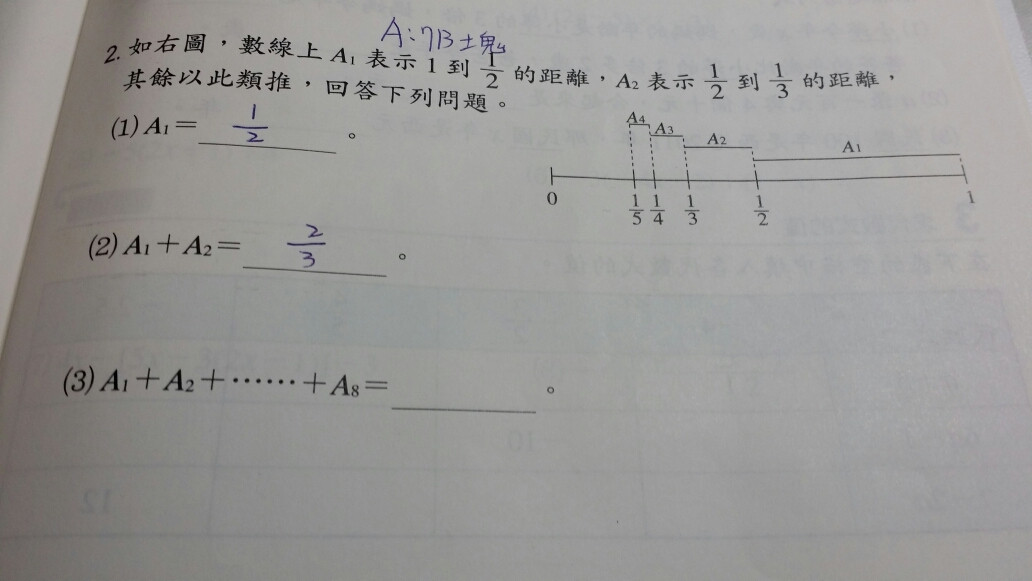 A:那一塊
2. 如右圖，數線上 A₁ 表示 1 到 1/2 的距離，A₂ 表示 1/2 到 1/3 的距離，
其餘以此類推，回答下列問題。
(1) A₁ = 1/2 。
A₄ A₃ A₂ A₁
0 1/5 1/4 1/3 1/2 1
(2) A₁ + A₂ = 2/3 。
(3) A₁ + A₂ + …… + A₈ = ______ 。